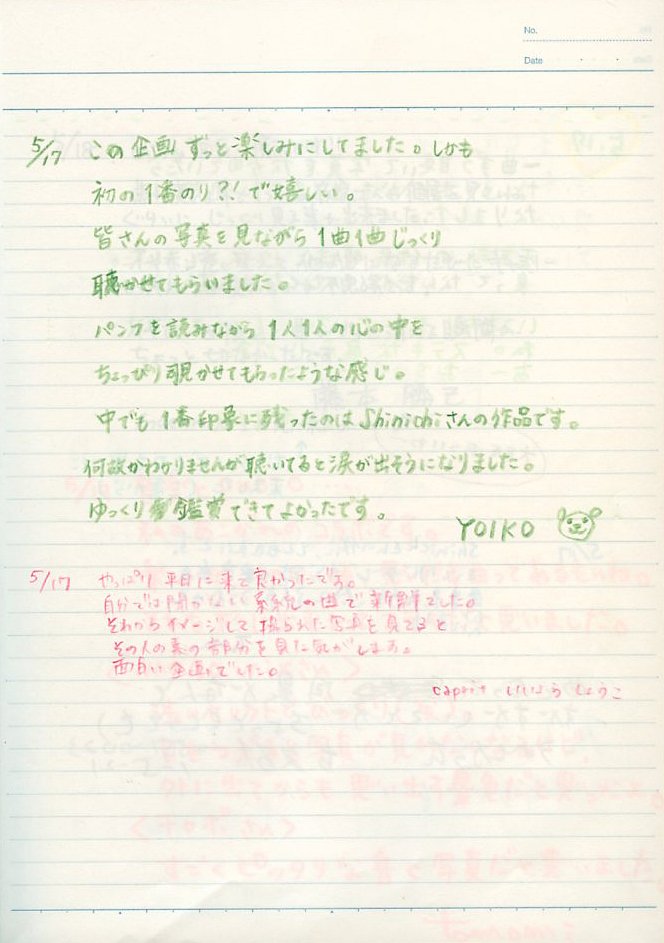 No.
Date
5/17 この企画ずっと楽しみにしてました。しかも
初の1番のり?!で嬉しい。
皆さんの写真を見ながら1曲1曲じっくり
聴かせてもらいました。
パンフを読みながら1人1人の心の中を
ちょっぴり覗かせてもらったような感じ。
中でも1番印象に残ったのはShinichiさんの作品です。
何故かわかりませんが聴いてると涙が出そうになりました。
ゆっくり鑑賞できてよかったです。
YOIKO
5/17 やっぱり平日に来て良かったです。
自分では聞かない系統の曲で新鮮でした。
それからイメージして撮られた写真を見てると
その人の素の部分を見た気がします。
面白い企画でした。
いしょうしょうこ